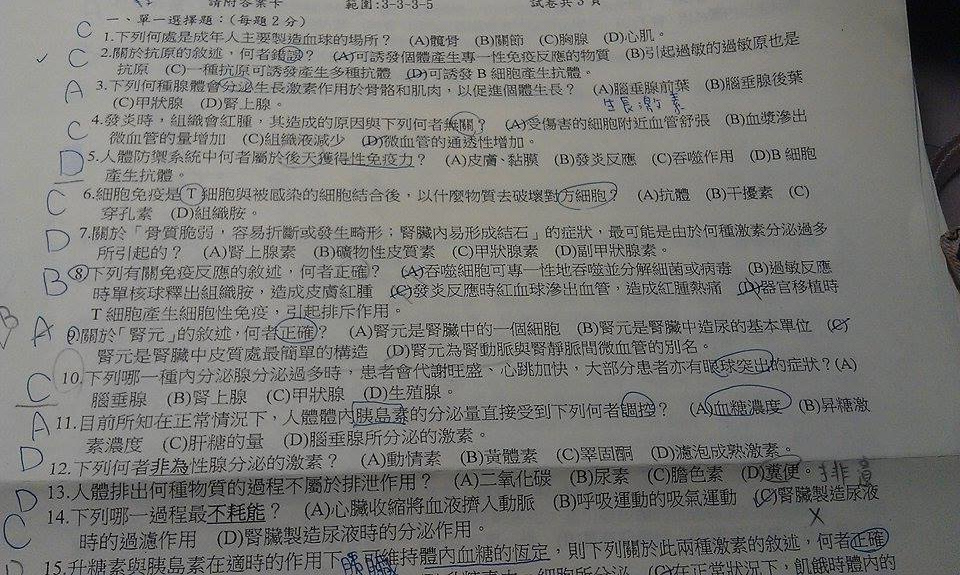 請附答案卡 範圍:3-3-3-5 試卷共3頁
一、單一選擇題：(每題2分)
C 1.下列何處是成年人主要製造血球的場所？ (A)髖骨 (B)關節 (C)胸腺 (D)心肌。
C 2.關於抗原的敘述，何者錯誤？ (A)可誘發個體產生專一性免疫反應的物質 (B)引起過敏的過敏原也是
抗原 (C)一種抗原可誘發產生多種抗體 (D)可誘發B細胞產生抗體。
A 3.下列何種腺體會分泌生長激素作用於骨骼和肌肉，以促進個體生長？ (A)腦垂腺前葉 (B)腦垂腺後葉
(C)甲狀腺 (D)腎上腺。 生長激素
C 4.發炎時，組織會紅腫，其造成的原因與下列何者無關？ (A)受傷害的細胞附近血管舒張 (B)血漿滲出
微血管的量增加 (C)組織液減少 (D)微血管的通透性增加。
D 5.人體防禦系統中何者屬於後天獲得性免疫力？ (A)皮膚、黏膜 (B)發炎反應 (C)吞噬作用 (D)B細胞
產生抗體。
C 6.細胞免疫是T細胞與被感染的細胞結合後，以什麼物質去破壞對方細胞？ (A)抗體 (B)干擾素 (C)
穿孔素 (D)組織胺。
D 7.關於「骨質脆弱，容易折斷或發生畸形；腎臟內易形成結石」的症狀，最可能是由於何種激素分泌過多
所引起的？ (A)腎上腺素 (B)礦物性皮質素 (C)甲狀腺素 (D)副甲狀腺素。
B 8.下列有關免疫反應的敘述，何者正確？ (A)吞噬細胞可專一性地吞噬並分解細菌或病毒 (B)過敏反應
時單核球釋出組織胺，造成皮膚紅腫 (C)發炎反應時紅血球滲出血管，造成紅腫熱痛 (D)器官移植時
T細胞產生細胞性免疫，引起排斥作用。
B A 9.關於「腎元」的敘述，何者正確？ (A)腎元是腎臟中的一個細胞 (B)腎元是腎臟中造尿的基本單位 (C)
腎元是腎臟中皮質處最簡單的構造 (D)腎元為腎動脈與腎靜脈間微血管的別名。
C 10.下列哪一種內分泌腺分泌過多時，患者會代謝旺盛、心跳加快，大部分患者亦有眼球突出的症狀？(A)
腦垂腺 (B)腎上腺 (C)甲狀腺 (D)生殖腺。
A 11.目前所知在正常情況下，人體體內胰島素的分泌量直接受到下列何者調控？ (A)血糖濃度 (B)昇糖激
素濃度 (C)肝糖的量 (D)腦垂腺所分泌的激素。
D 12.下列何者非為性腺分泌的激素？ (A)動情素 (B)黃體素 (C)睪固酮 (D)濾泡成熟激素。
D 13.人體排出何種物質的過程不屬於排泄作用？ (A)二氧化碳 (B)尿素 (C)膽色素 (D)糞便。 排遺
C 14.下列哪一過程最不耗能？ (A)心臟收縮將血液擠入動脈 (B)呼吸運動的吸氣運動 (C)腎臟製造尿液
時的過濾作用 (D)腎臟製造尿液時的分泌作用。 X
15.升糖素與胰島素在適時的作用下，可維持體內血糖的恆定，則下列關於此兩種激素的敘述，何者正確
胰臟 (C)在正常狀況下，飢餓時體內的